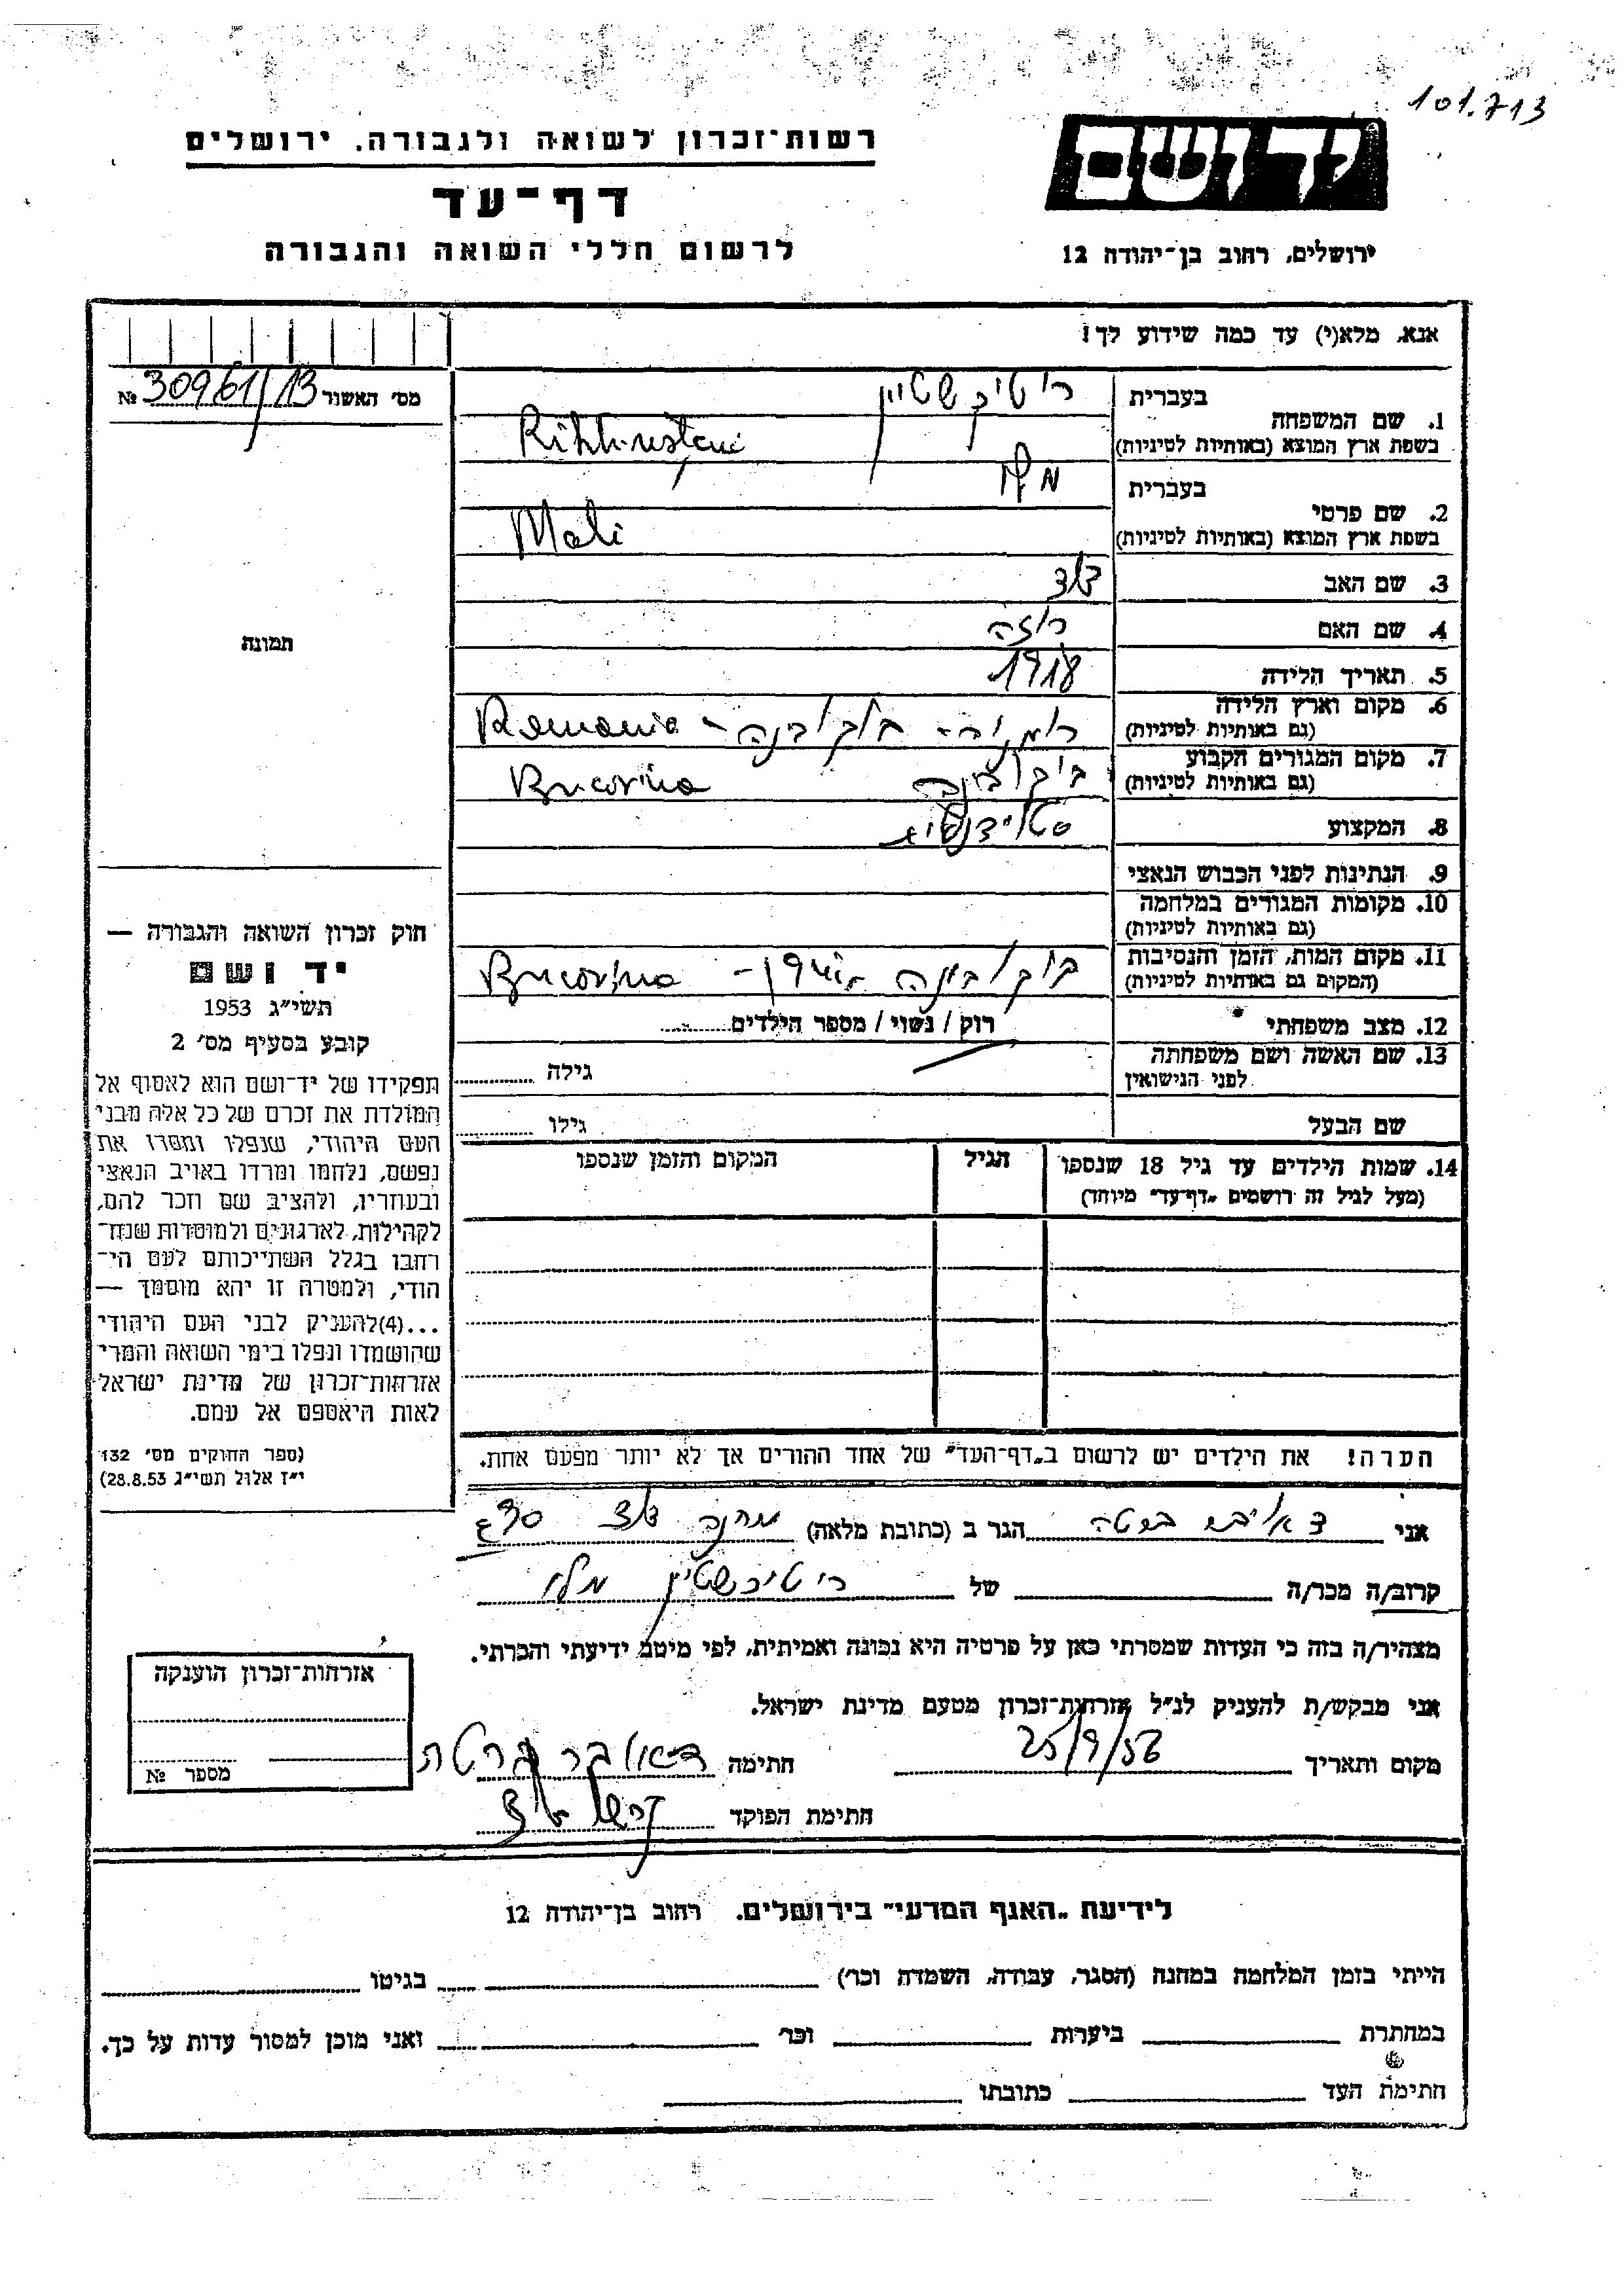 101.713
רשות־זכרון לשואה ולגבורה. ירושלים
דף־עד
לרשום חללי השואה והגבורה
יד ושם
ירושלים, רחוב בן־יהודה 12
אנא, מלא(י) עד כמה שידוע לך!
מס׳ האשור 30961/13 №
תמונה
1. שם המשפחה
בעברית
בשפת ארץ המוצא (באותיות לטיניות)
2. שם פרטי
בעברית
בשפת ארץ המוצא (באותיות לטיניות) Mali
3. שם האב דוד
4. שם האם רוזה
5. תאריך הלידה 1918
6. מקום וארץ הלידה
(גם באותיות לטיניות) רומניה - בוקובינה - Romania
7. מקום המגורים הקבוע
(גם באותיות לטיניות) בוקובינה Bucovina
8. המקצוע סטודנטית
9. הנתינות לפני הכבוש הנאצי
10. מקומות המגורים במלחמה
(גם באותיות לטיניות)
11. מקום המות, הזמן והנסיבות
(המקום גם באותיות לטיניות) בוקובינה Bucovina
12. מצב משפחתי רוק / נשוי / מספר הילדים
13. שם האשה ושם משפחתה
לפני הנישואין גילה
שם הבעל גילו
14. שמות הילדים עד גיל 18 שנספו
(מעל לגיל זה רושמים „דף־עד״ מיוחד)
הגיל
המקום והזמן שנספו
הערה! את הילדים יש לרשום ב„דף־העד״ של אחד ההורים אך לא יותר מפעם אחת.
חוק זכרון השואה והגבורה —
יד ושם
תשי״ג 1953
קובע בסעיף מס׳ 2
תפקידו של יד־ושם הוא לאסוף אל
המולדת את זכרם של כל אלה מבני
העם היהודי, שנפלו ומסרו את
נפשם, נלחמו ומרדו באויב הנאצי
ובעוזריו, ולהציב שם וזכר להם,
לקהילות, לארגונים ולמוסדות שנח־
רבו בגלל השתייכותם לעם הי־
הודי, ולמטרה זו יהא מוסמך —
...(4)להעניק לבני העם היהודי
שהושמדו ונפלו בימי השואה והמרי
אזרחות־זכרון של מדינת ישראל
לאות היאספם אל עמם.
(ספר החוקים מס׳ 132
י״ז אלול תשי״ג 28.8.53)
אני ברטה הגר ב (כתובת מלאה) מחנה דוד
קרוב/ה מכר/ה של ריטיכשטיין מלי
מצהיר/ה בזה כי העדות שמסרתי כאן על פרטיה היא נכונה ואמיתית, לפי מיטב ידיעתי והכרתי.
אני מבקש/ת להעניק לנ״ל אזרחות־זכרון מטעם מדינת ישראל.
מקום ותאריך 25/9/56 חתימה ברטה
חתימת הפוקד
אזרחות־זכרון הוענקה
מספר №
לידיעת „האגף המדעי״ בירושלים. רחוב בן־יהודה 12
הייתי בזמן המלחמה במחנה (הסגר, עבודה, השמדה וכר׳) בגיטו
במחתרת ביערות וכר׳ ואני מוכן למסור עדות על כך.
חתימת העד כתובתו